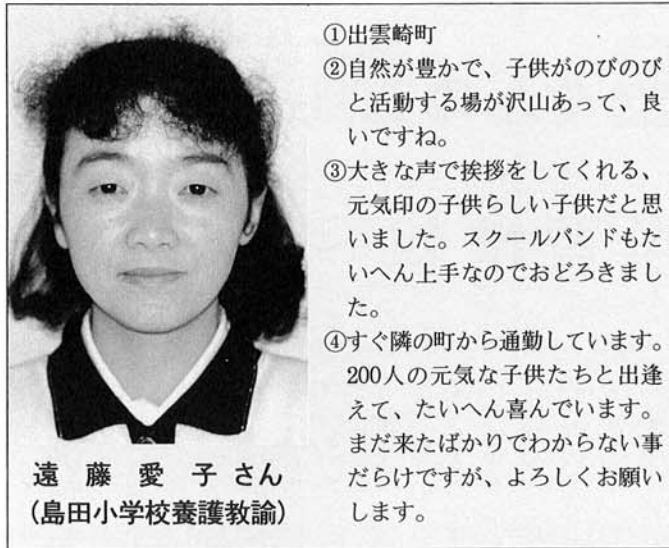 ①出雲崎町
②自然が豊かで、子供がのびのび
と活動する場が沢山あって、良
いですね。
③大きな声で挨拶をしてくれる、
元気印の子供らしい子供だと思
いました。スクールバンドもた
いへん上手なのでおどろきまし
た。
④すぐ隣の町から通勤しています。
200人の元気な子供たちと出逢
えて、たいへん喜んでいます。
まだ来たばかりでわからない事
だらけですが、よろしくお願い
します。
遠藤愛子さん
(島田小学校養護教諭)